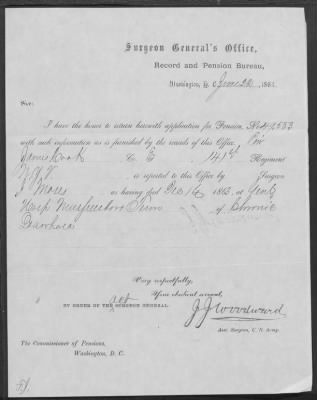 Surgeon General's Office,
Record and Pension Bureau,
Washington, D. C. June 28, 186
Sir:
I have the honor to return herewith application for Pension No 42553
with such information as is furnished by the records of this Office.
James Cook Co E 141st Regiment
N.Y.V. is reported to this Office by Surgeon
J Moses as having died Dec 16, 1863, at Genl
Hosp Murfreesboro Tenn of Chronic
Diarrhoea
Very respectfully,
Your obedient servant,
BY ORDER OF THE act SURGEON GENERAL
J. J. Woodward
Ass. Surgeon, U. S. Army.
The Commissioner of Pensions,
Washington, D. C.